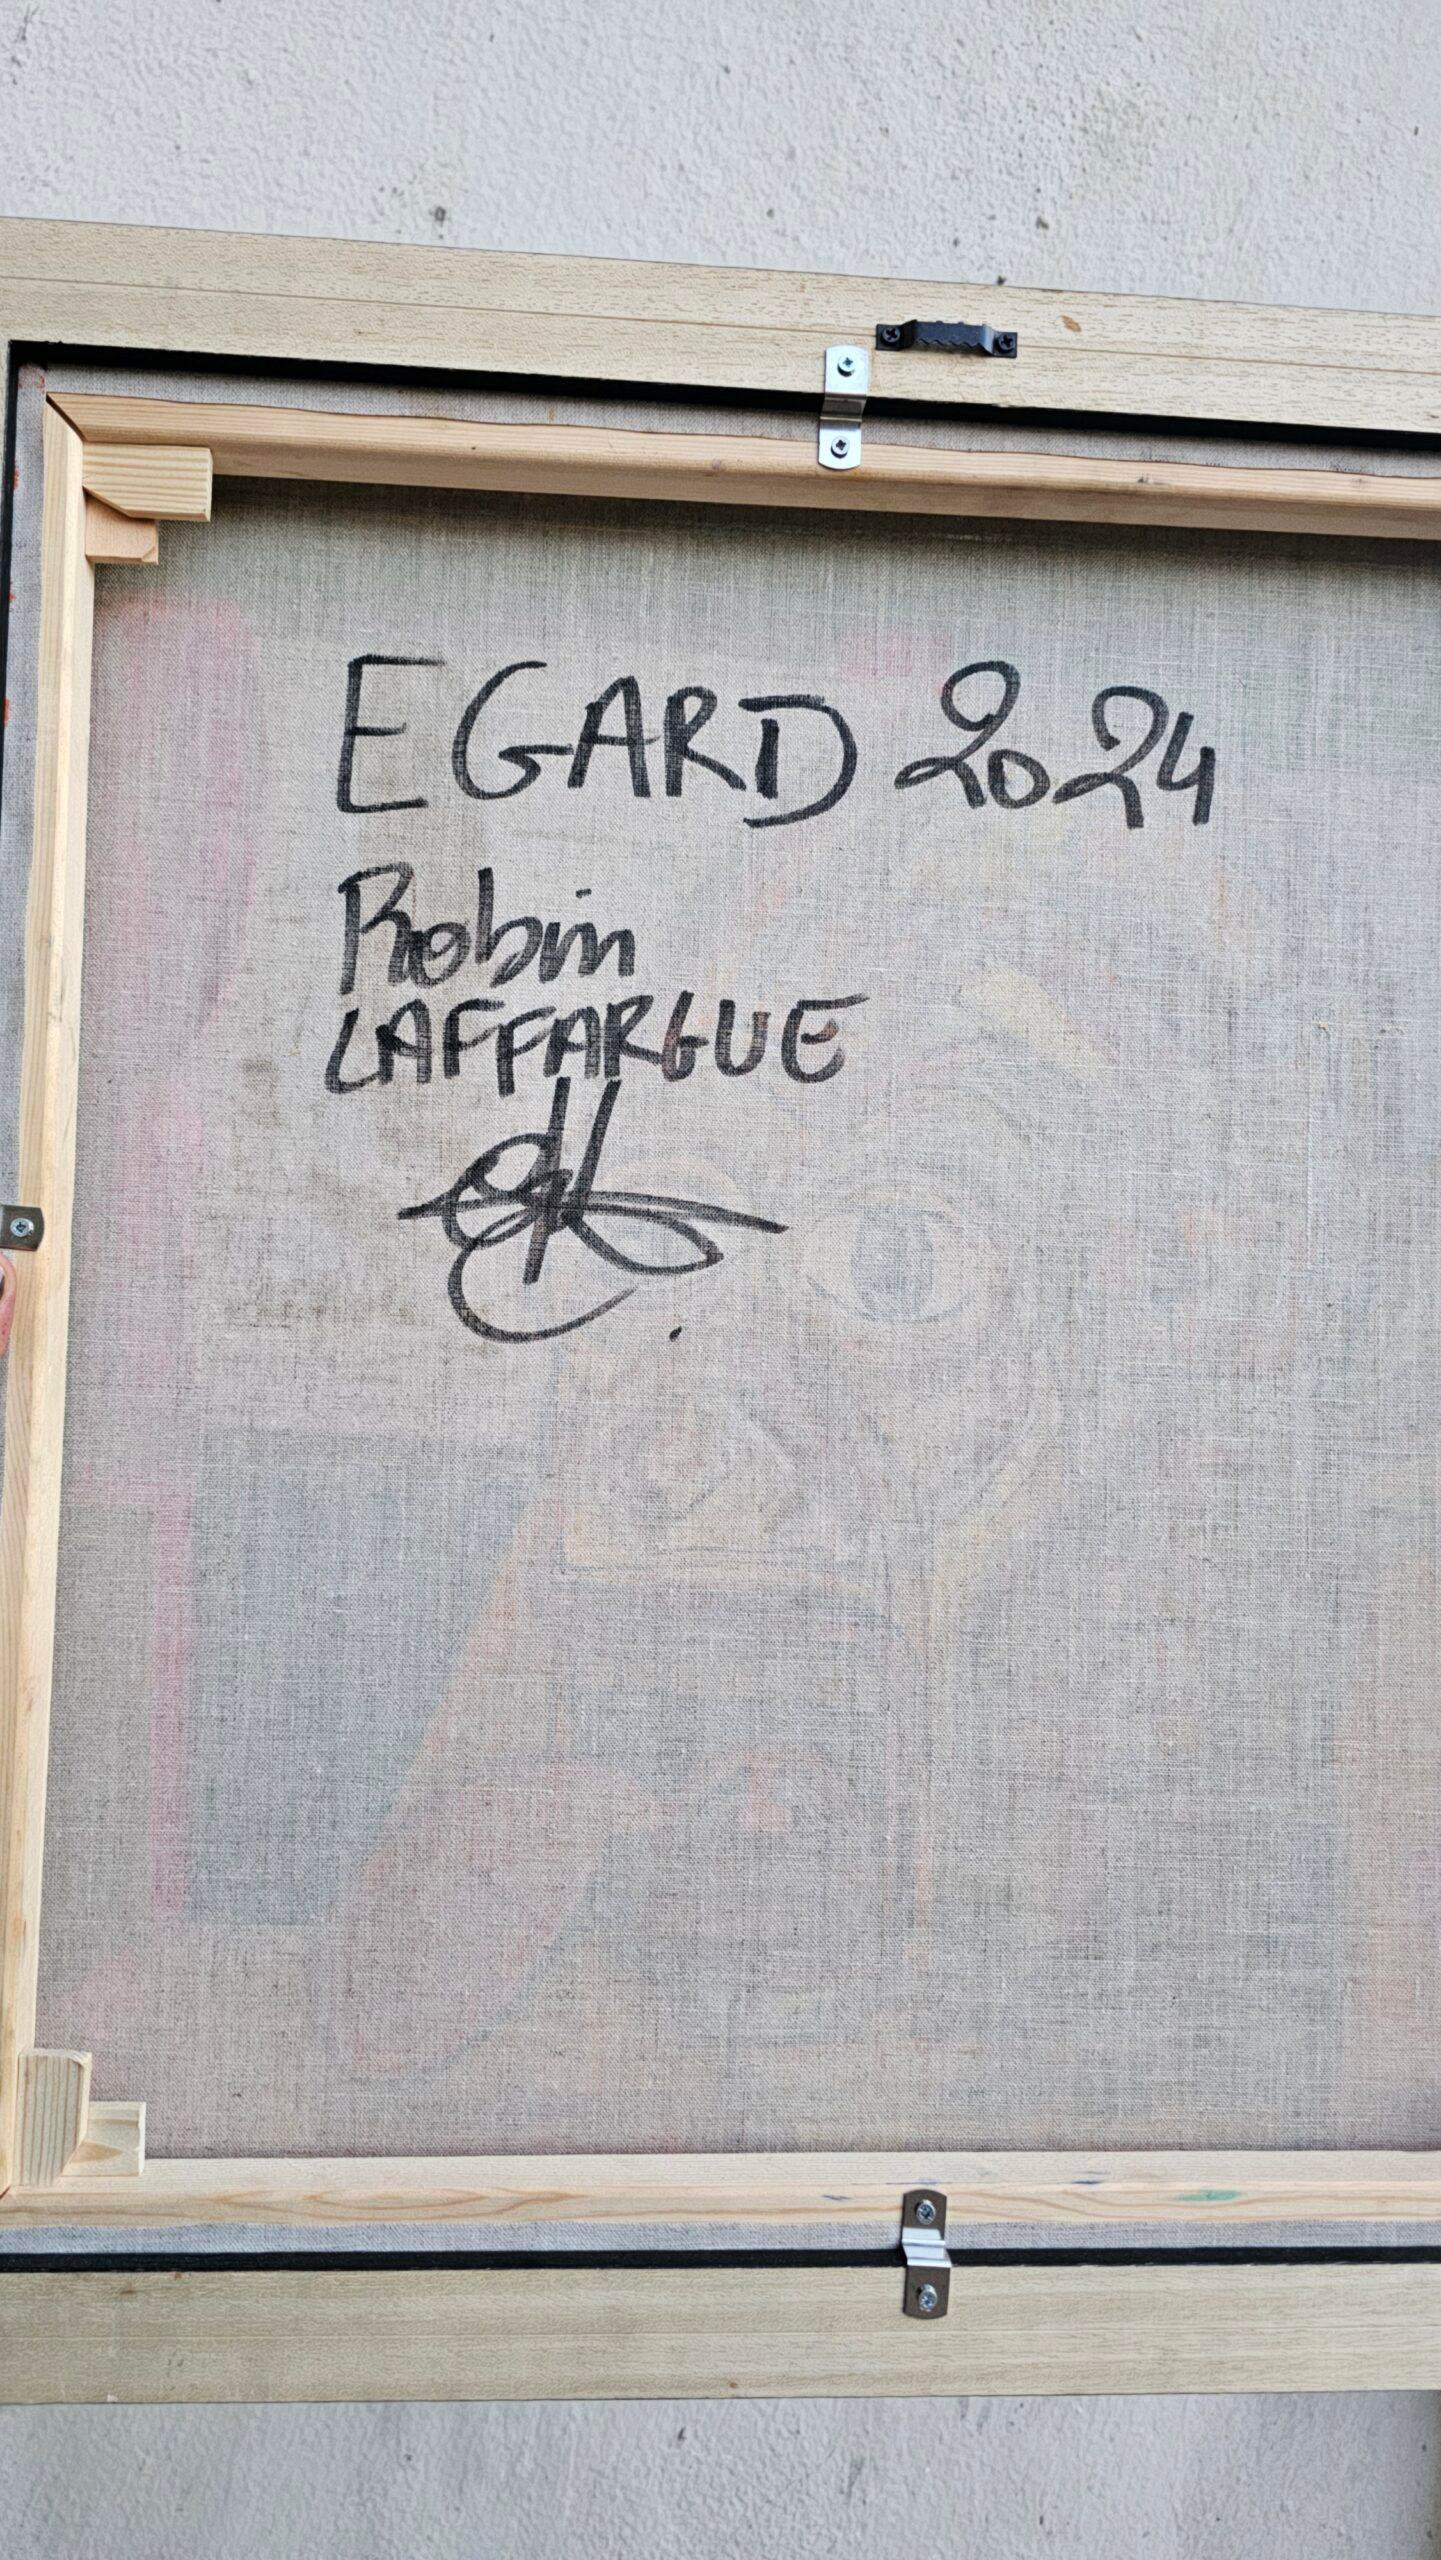 EGARD 2024
Robin
LAFFARGUE